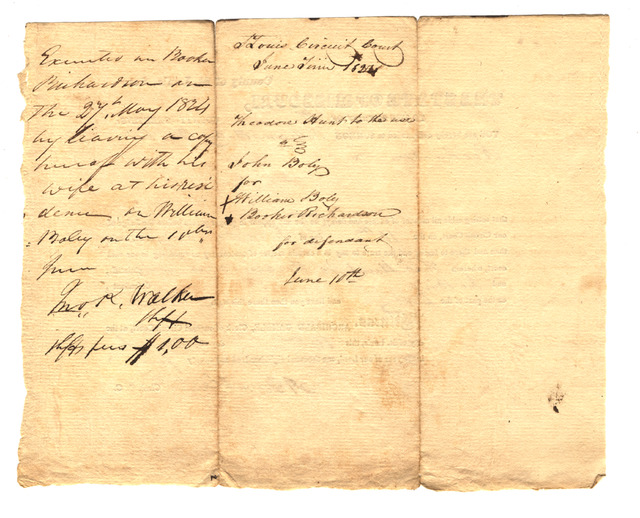 Executed on Booker
Richardson on
the 27th May 1824
by leaving a copy
hereof with his
wife at his resi
dence, on William
Boly on the 10th
June
Jno K. Walker
Shff
Shffs fees $1,00
St Louis Circuit Court
June Term 1824
Theodore Hunt to the use
John Boly
for
William Boly
Booker Richardson
for defendant
June 10th